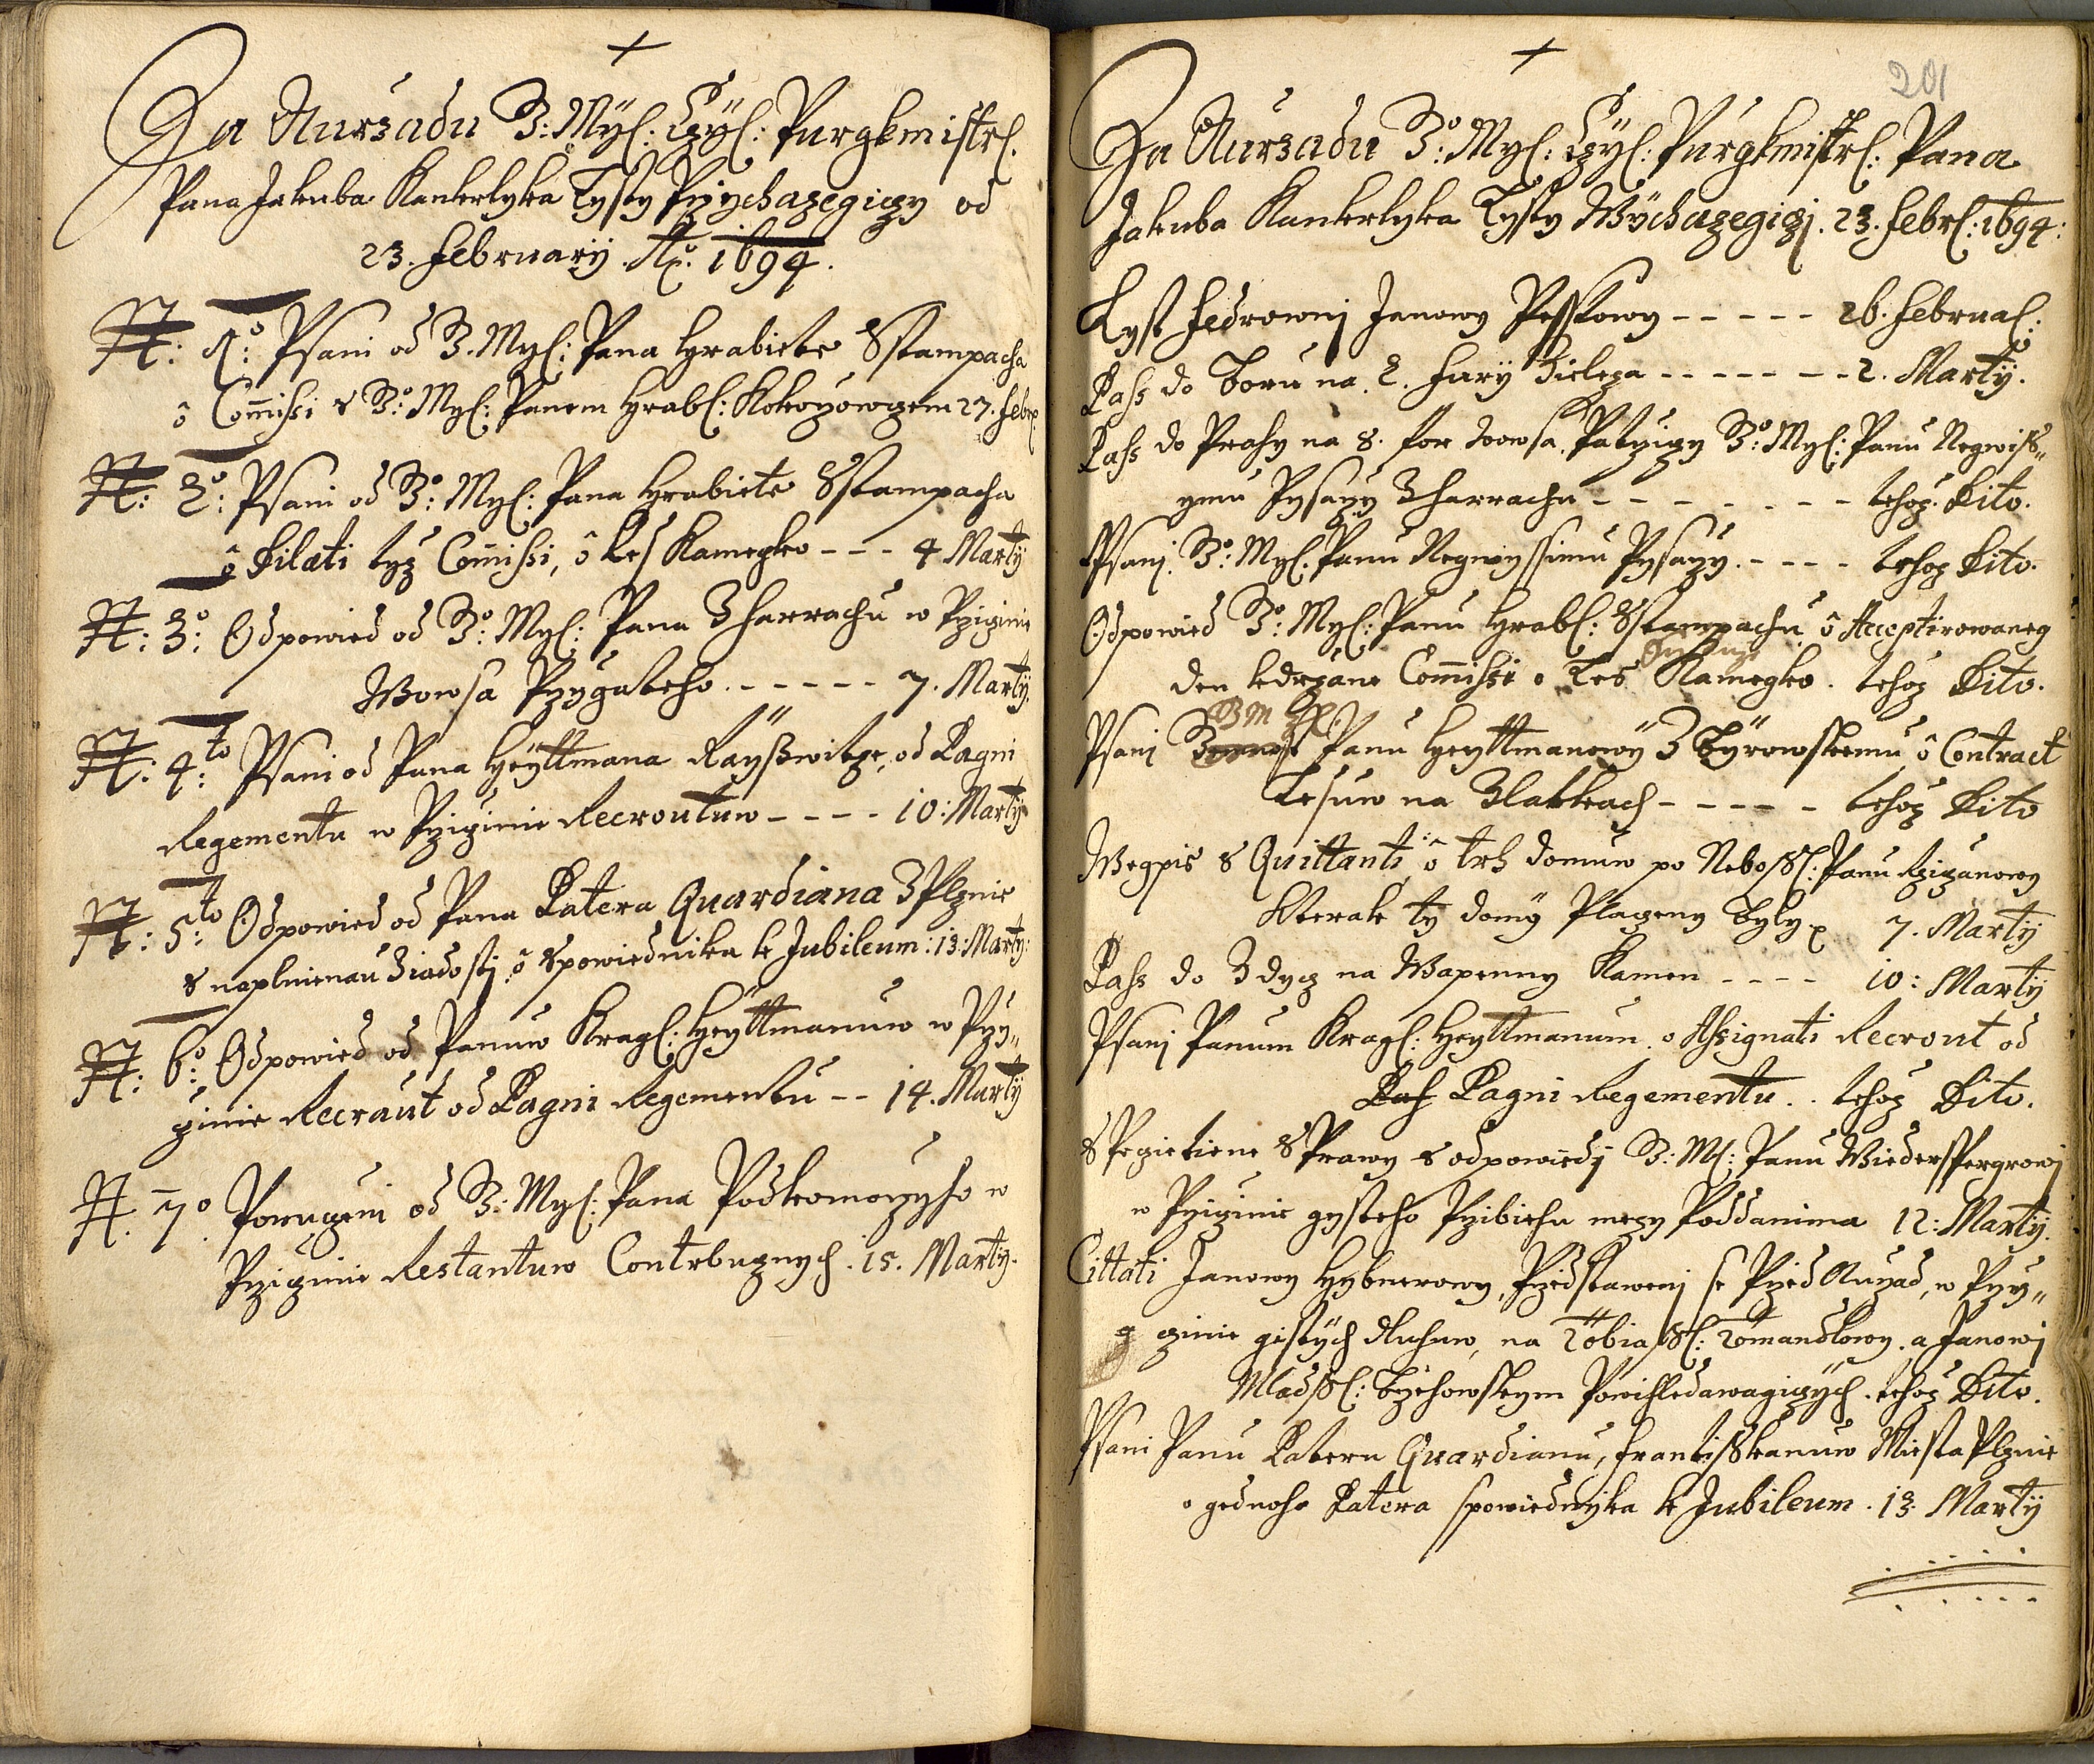 +
Za Auržadu J: Myl: Czyl: Purgkmistrl:
Pana Jakuba Kankrlyka Lysty Pržichazegiczy od
23. Februarij Ao: 1694.
N: 1o: Psani od J. Myl: Pana Hrabiete Sstampacha
o Commissi s J: Myl: Panem Hrabl: Kokorzowczem 27. Febr:
N: 2o: Psani od J: Myl: Pana Hrabiete Sstampacha
o Dilati tyz Commissi, o Les Kamegko --- 4 Martij
N: 3o: Odpowied od J: Myl: Pana Z Harrachu w Pržiczinie
Wowsa Pržigateho ----- 7. Martij
N: 4to: Psani od Pana Heyttmana Rayßwitze, od Pagni
Regementu w Pržiczinie Recroutuw ---- 10: Martij
N: 5to: Odpowied od Pana Patera Quardiana Z Plznie
s naplnienau Ziadostj o Spowiednika k Jubileum: 13: Marty:
N: 6o: Odpowied od Panuw Kragl: Heyttmanuw w Prži„
czinie Recraut od Pagni Regementu -- 14. Martij
N. 7o. Poruczeni od J: Myl: Pana Podkomoržyho w
Pržiczinie Restantuw Contrbucznych. 15. Martij.
+
201
Za Auržadu J: Myl: Czyl: Purgkmistrl: Pana
Jakuba Kankrlyka Lysty Wychazegiczj. 23. Febrl: 1694:
Lyst Fedrownj Janowy Pesskowy ----- 26. Februal:
Pass do Boru na 2. Fury Zieleza ------- 2. Martij.
Pass do Prahy na 8. for wowsa Patržiczy J: Myl: Panu Negwiß„
ymu Pysaržy Z Harrachu ------- tehoz Dito.
Psanj J: Myl: Panu Negwyssimu Pysaržy. ---- tehoz Dito.
Odpowied J: Myl: Panu Hrabl: Sstampachu o Acceptirowaneg
den k držane Commissi o Les Kamegko. tehoz Dito.
Psanj Panu Heyttmanowy Z Byrowskemu o Contract
Lesuw na Zlatkach ----- tehoz Dito
Wegpis s Quittanti o trh domuw po Neboßl: Panu Ržiczanowy
Kterak ty domy Placzeny byly 7. Martij
Pass do Zdycz na Wapenny Kamen ---- 10: Martij
Psanj Panum Kragl: Heyttmanum o Assignati Recrout od
Pagni Regementu. . tehoz Dito.
S Pegietiene S Prawy s odpowiedj J: Ml: Panu Wiederspergrowj
w Pržiczinie gysteho Pržibiehu mezy Poddanima 12: Martij.
Cittati Janowy Hybnerowy, Pržedstawenj se Pržed Auržad, w Prži„
czinie gistych dluhuw, na Tobiaßl: Tomandlowy. a Janowj
Mladßl: Byehowskym Powihledawagiczych. tehoz Dito.
Psani Panu Pateru Quardianu, Frantißkanuw Miesta Plznie
o gednoho Patera Spowiednyka k Jubileum. 13. Martij